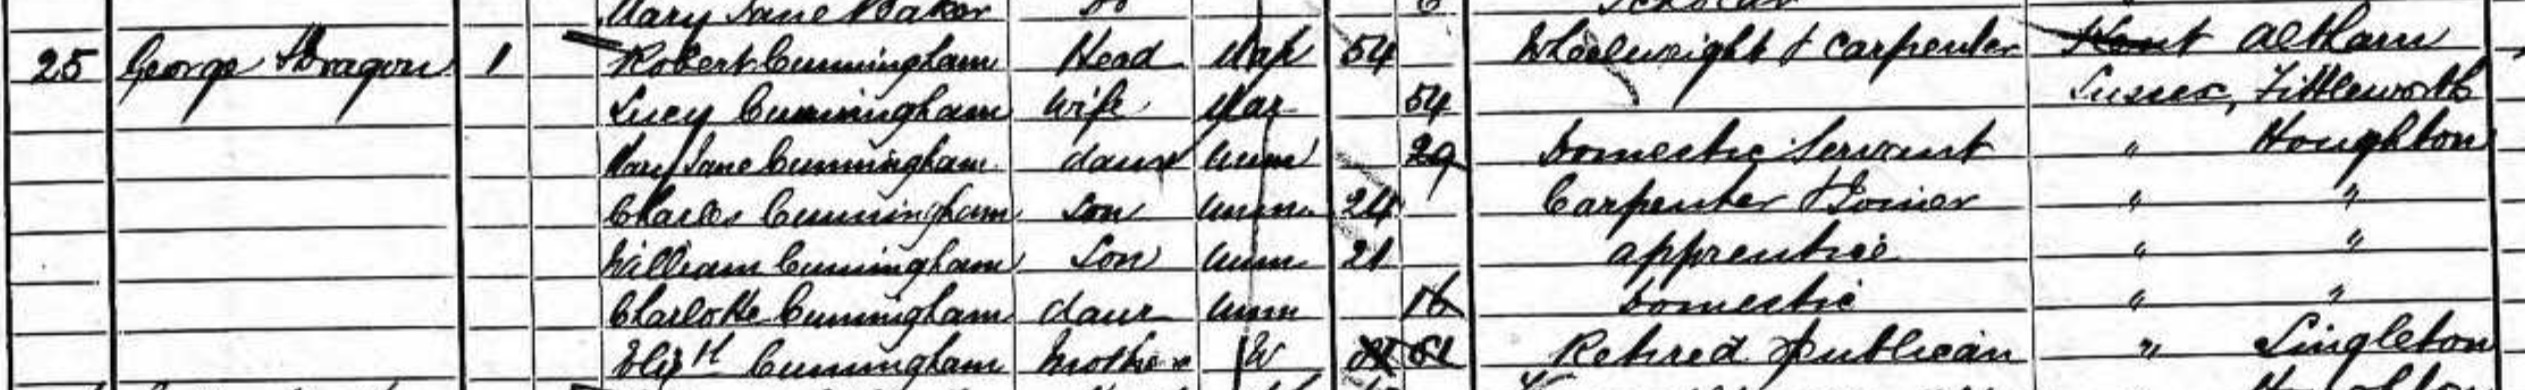 Mary Jane Baker Do 6 Scholar
25 George & Dragon 1 Robert Cunningham Head Mar 54 Wheelwright & Carpenter Kent Altham
Lucy Cunningham Wife Mar 54 Sussex, Fittleworth
Mary Jane Cunningham daur Unm 29 Domestic Servant " Houghton
Charles Cunningham Son Unm 24 Carpenter & Joiner " "
William Cunningham Son Unm 21 apprentice " "
Charlotte Cunningham daur Unm 16 Domestic " "
Elizth Cunningham Mother W 81 Retired Publican " Singleton